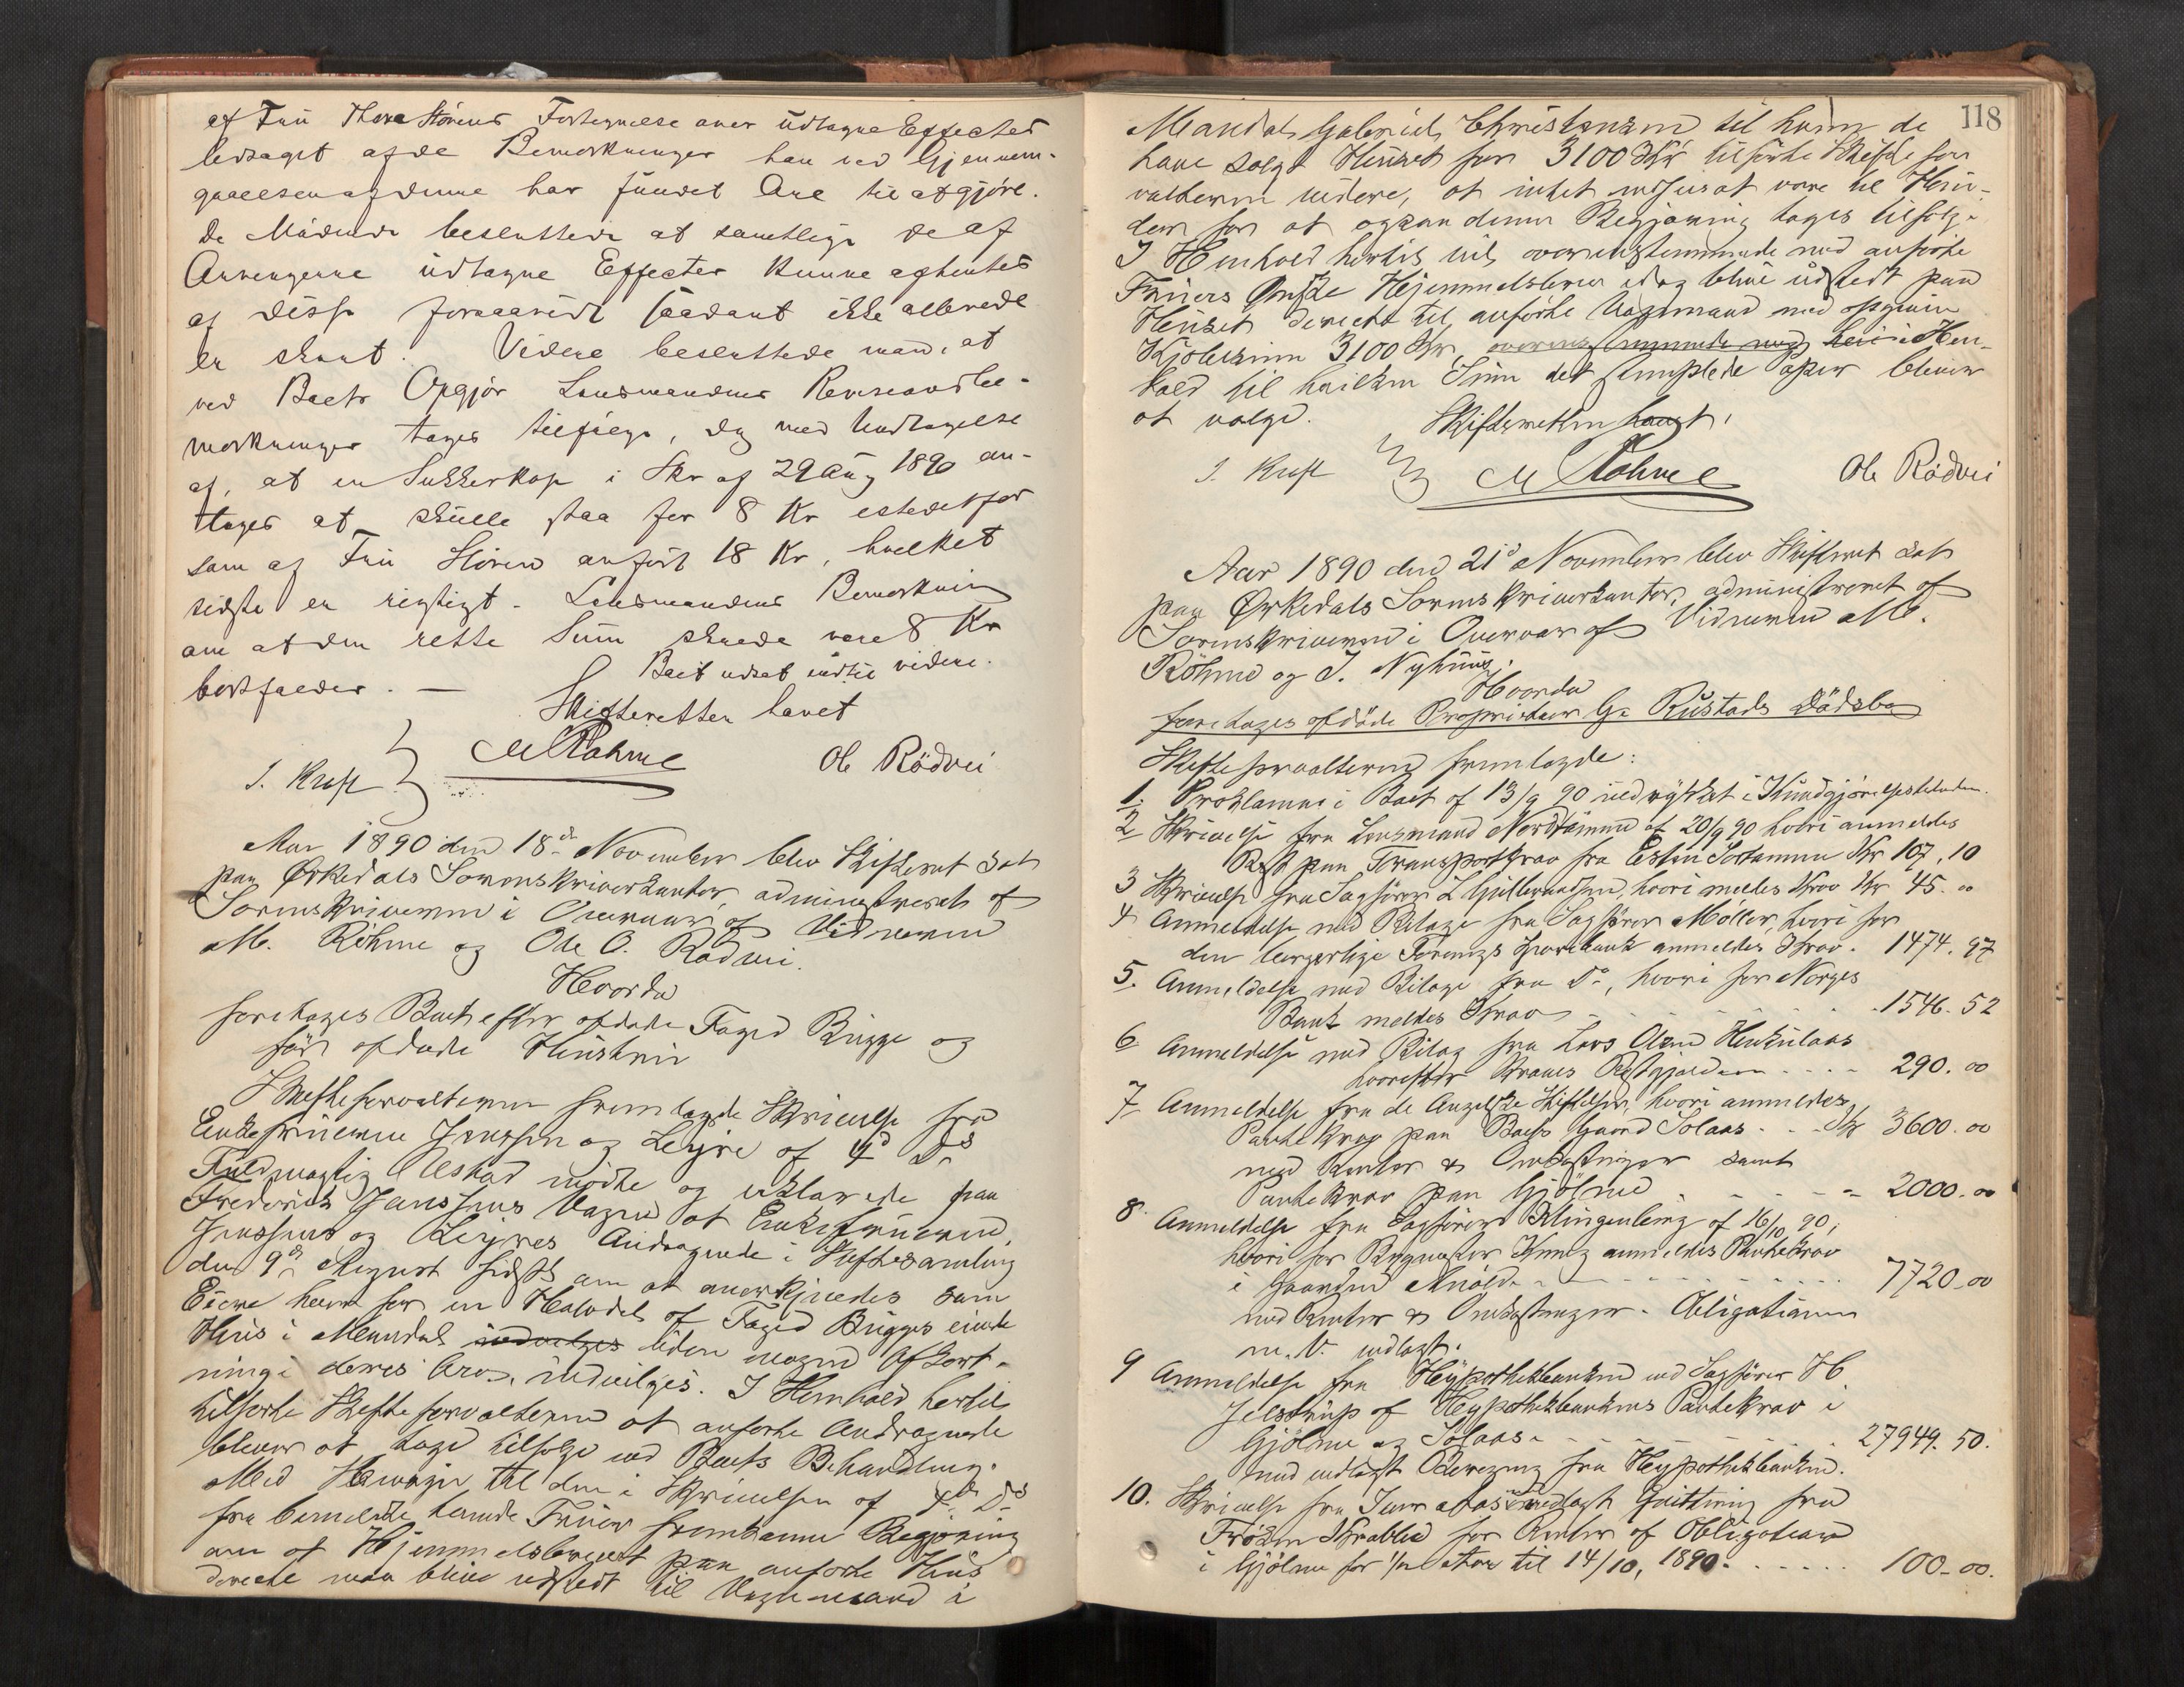 af Fru Thora Störens Fortegnelse over udtagne Effecter
ledsaget af de Bemærkninger han ved Gjennem-
gaaelsen af denne har fundet Ane til at gjöre.
De Mödende besluttede at samtlige de af
Arvingerne udtagne Effecter kunne afhentes
af disse forsaavidt saadant ikke allerede
er skeet. Videre besluttede man, at
ved Boets Opgjör Lensmandens Revisionsbe-
mærkninger tages tilfölge, dog med Undtagelse
af, at en Sukkerkop i Skr af 29 Aug 1890 an-
tages at skulle staa for 8 Kr istedetfor
som af Fru Stören anfört 18 Kr, hvilket
sidste er rigtigt. Lensmandens Bemærkning
om at den rette Sum skulde være 8 Kr
bortfalder. — Boet udsat indtil videre.
Skifteretten hævet
J. Kreft M Röhme Ole Rödvei
Aar 1890 den 18de November blev Skifteret sat
paa Ørkedals Sorenskriverkontor, administreret af
Sorenskriveren i Overvær af Vidnerne
M. Röhme og Ole O. Rödvei.
Hvorda
foretoges Boet efter afdöde Foged Brigge og
för afdöde Hustru
Skifteforvalteren fremlagde Skrivelse fra
Enkefruerne Janssen og Leyre af 4d ds
Fuldmægtig Uestad mödte og erklærede paa
Frederick Janssens Vegne at Enkefruerne
Janssens og Leyres Andragende i Skiftesamling
den 9de August sidste om at anerkjendes som
Eiere hver for en Halvdel af Foged Brigges eiende
Hus i Meandal indvilges uden nogen Afkort-
ning i deres Arv, indvilges. I Henhold hertil
tilförte Skifteforvalteren at anförte Andragende
bliver at tage tilfölge ved Boets Behandling.
Med Hensyn til den i Skrivelsen af 4de ds
fra bemeldte tvende Fruer fremkomne Begjæring
om at Hjemmelsbrevet paa anförte Hus
directe maa blive udstedt til Vognmand i
118
Meandal Gabriel Christensen til hvem de
have solgt Huset for 3100 Kr tilförte Skiftefor
valteren videre, at intet vidstes at være til Hin-
der for at ogsaa denne Begjæring tages tilfölge
I Henhold hertil vil overensstemmende med anförte
Fruers Ønske Hjemmelsbrev idag blive udstedt paa
Huset directe til anförte Vognmand med opgiven
Kjöbesum 3100 Kr, overensstemmende med hvi i Hen-
hold til hvilken Sum det stemplede Papir bliver
at vælge. Skifteretten hævet.
J. Kreft M Röhme Ole Rödvei
Aar 1890 den 21d November blev Skifteret sat
paa Ørkedals Sorenskriverkontor, administreret af
Sorenskriveren i Overvær af Vidnerne M.
Röhme og J. Nyhuus.
Hvorda
foretoges afdöde Proprietær G. Rustads Dödsbo
Skifteforvalteren fremlagde:
1. Proklama i Boet af 13/9 90 indrykket i Kundgjörelsestidende.
2 Skrivelse fra Lensmand Nordtömme af 20/9 90 hvori anmeldes
Rest paa Transportkrav fra Estin Sortömme Kr 107,10
3 Skrivelse fra Sagförer L Gulbrandsen, hvori meldes Krav Kr 45.00
4 Anmeldelse med Bilage fra Sagförer Möller, hvori for
den borgerlige Forenings Sparebank anmeldes Krav. 1474.97
5. Anmeldelse med Bilage fra Do, hvori for Norges
Bank meldes Krav 1546.52
6 Anmeldelse med Bilag fra Lars Olsen Henkulaas
hvorefter kræves Restgjælden 290.00
7 Anmeldelse fra de Angelske Stiftelser, hvori anmeldes
Pantekrav paa Boets Gaard Solaas Kr 3600.00
med Renter & Omkostninger samt
Pantekrav paa Gjölme 2000.00
8 Anmeldelse fra Sagförer Klingenberg af 16/10 90,
hvori for Bygmester Kunig anmeldes Pantekrav
i Gaarden Evjölde 7720.00
med Renter & Omkostninger. Obligationen
m.V. vedlagt.
9 Anmeldelse fra Hypothekbanken ved Sagförer H
Jelstrup af Hypothekbankens Pantekrav i
Gjölme og Solaas 27949.50.
med vedlagt Beregning fra Hypothekbanken.
10. Skrivelse fra Iver Aasen vedlagt Qvittering fra
Fröken Krabbe for Renter af Obligation
i Gjölme for 1/2 Aar til 14/10, 1890. 100.00.